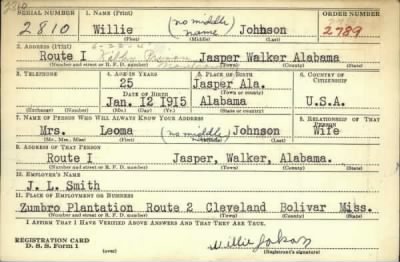 2810
SERIAL NUMBER 1. NAME (Print) ORDER NUMBER
2810 Willie (no middle name) Johnson 2789
(First) (Middle) (Last)
2. ADDRESS (Print)
Route I Kilby Prison Jasper Walker Alabama
(Number and street or R. F. D. number) (Town) (County) (State)
3. TELEPHONE 4. AGE IN YEARS 5. PLACE OF BIRTH 6. COUNTRY OF CITIZENSHIP
25 Jasper Ala.
DATE OF BIRTH (Town or county)
Jan. 12 1915 Alabama U.S.A.
(Exchange) (Number) (Mo.) (Day) (Yr.) (State or country)
7. NAME OF PERSON WHO WILL ALWAYS KNOW YOUR ADDRESS 8. RELATIONSHIP OF THAT PERSON
Mrs. Leoma (no middle) Johnson Wife
(Mr., Mrs., Miss) (First) (Middle) (Last)
9. ADDRESS OF THAT PERSON
Route I Jasper, Walker, Alabama.
(Number and street or R. F. D. number) (Town) (County) (State)
10. EMPLOYER'S NAME
J. L. Smith
11. PLACE OF EMPLOYMENT OR BUSINESS
Zumbro Plantation Route 2 Cleveland Bolivar Miss.
(Number and street or R. F. D. number) (Town) (County) (State)
I AFFIRM THAT I HAVE VERIFIED ABOVE ANSWERS AND THAT THEY ARE TRUE.
REGISTRATION CARD
D. S. S. Form 1 (over) (Registrant's signature)